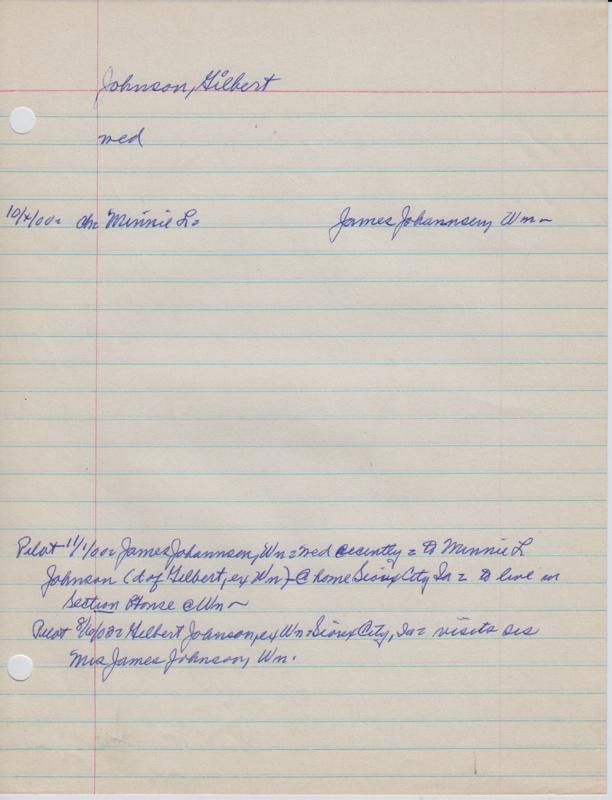 Johnson, Gilbert
wed
10/4/00= ch= Minnie L= James Johannsen, Wn~
Pilot 11/1/00= James Johannsen, Wn= wed recently= to Minnie L
Johnson (d of Gilbert, ex Wn)- @ home Sioux City Ia= to live in
Section House @ Wn~
Pilot = Gilbert Johnson, ex Wn= Sioux City, Ia= visits sis
Mrs James Johnson, Wn.